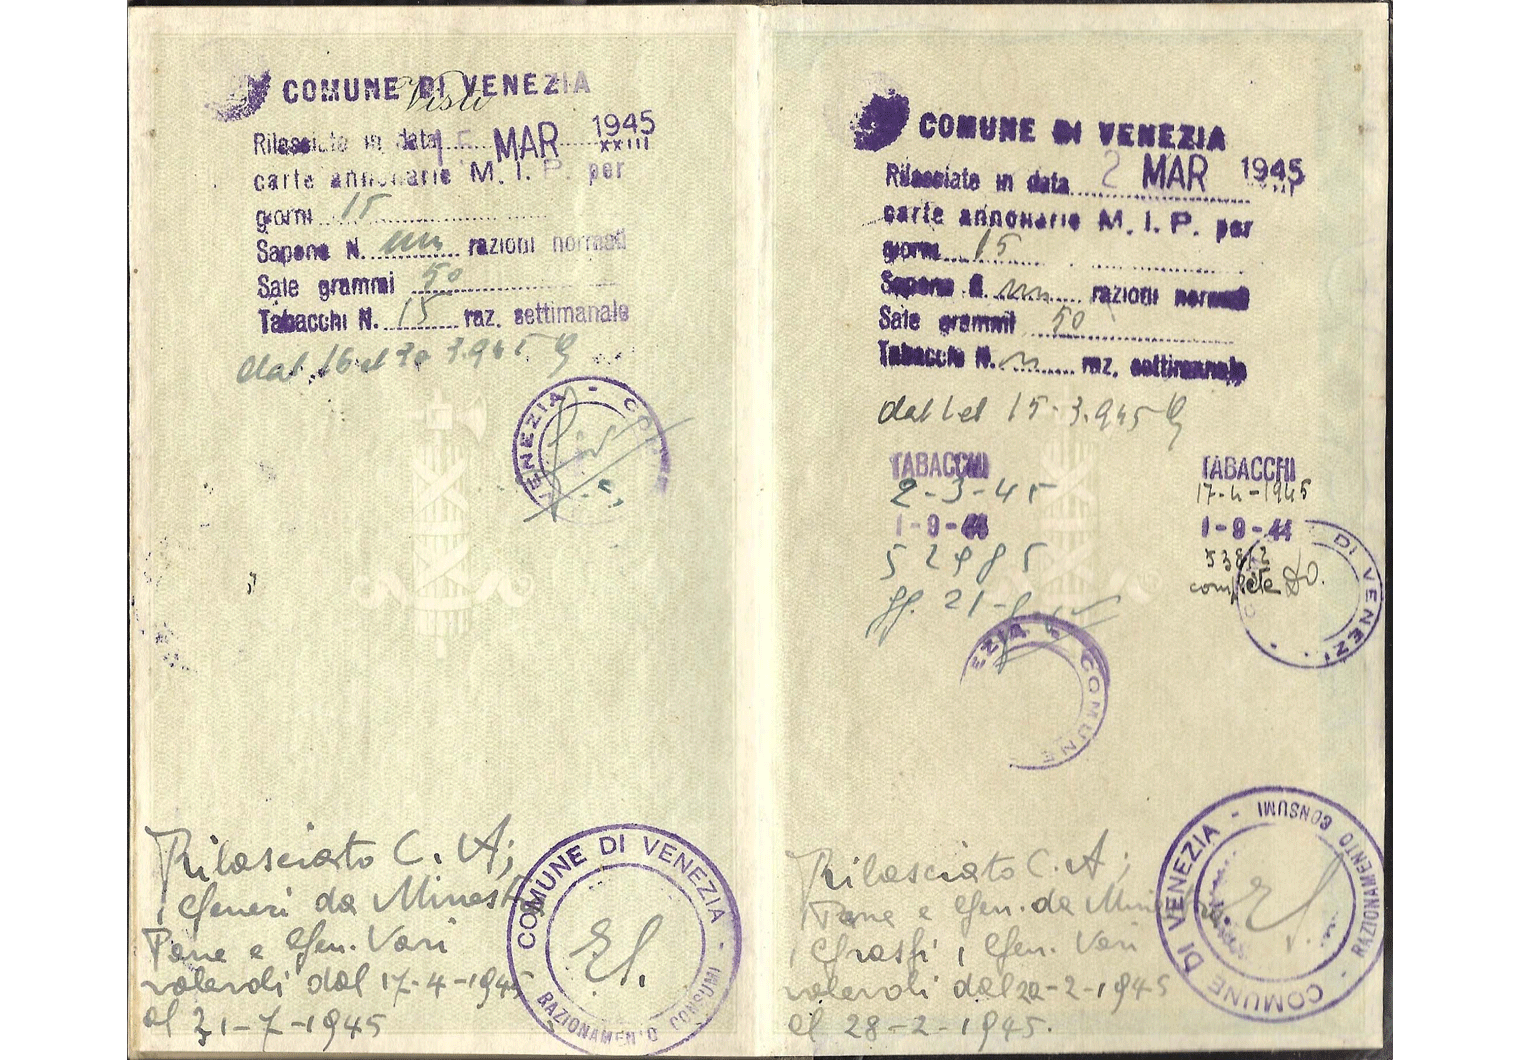 COMUNE DI VENEZIA
Visto
Rilasciate in data 15 MAR 1945
XXIII
carte annonarie M. I. P. per
giorni 15
Sapone N. razioni normali
Sale grammi 50
Tabacchi N. 15 raz. settimanale
dal 16 al 3.945
VENEZIA - COMUNE
Rilasciato C. A;
Generi da Minestra
Pane e Gen. Vari
valevoli dal 17-4-1945
al 31-7-1945
COMUNE DI VENEZIA - RAZIONAMENTO CONSUMI -
COMUNE DI VENEZIA
Rilasciate in data 2 MAR 1945
carte annonarie M. I. P. per
giorni 15
Sapone N. razioni normali
Sale grammi 50
Tabacchi N. raz. settimanale
dal 1 al 15-3.945
TABACCHI
2-3-45
1-9-44
52985
TABACCHI
17-4-1945
1-9-44
complete
DI VENEZI
EZIA - COMUNE
Rilasciato C. A;
Pane e Gen. da Minestra
Grassi, Gen. Vari
valevoli dal 22-2-1945
al 28-2-1945.
COMUNE DI VENEZIA - RAZIONAMENTO CONSUMI -